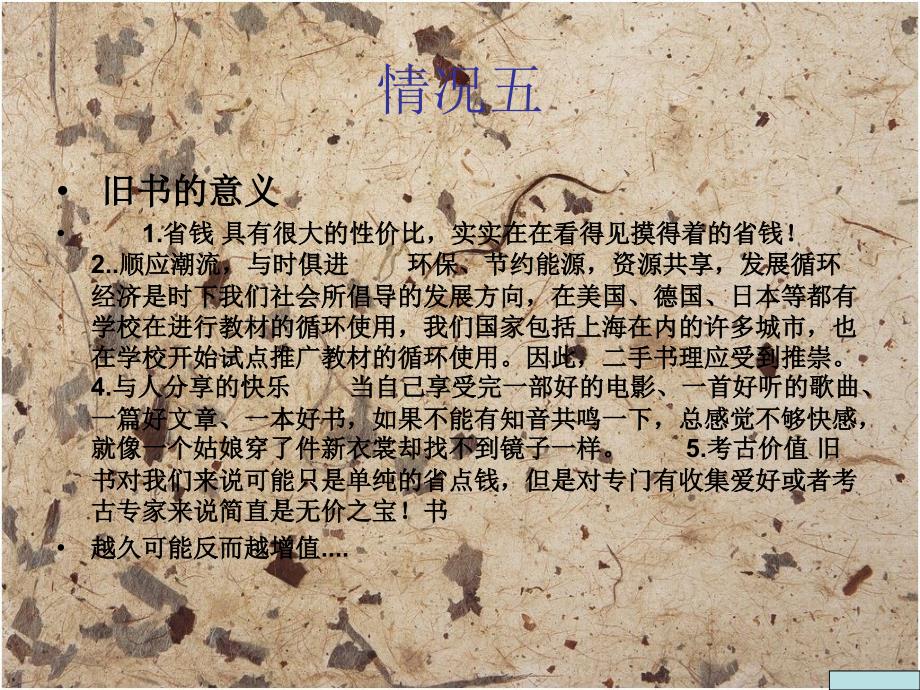 情况五
• 旧书的意义
• 1.省钱 具有很大的性价比，实实在在看得见摸得着的省钱！
2..顺应潮流，与时俱进 环保、节约能源，资源共享，发展循环
经济是时下我们社会所倡导的发展方向，在美国、德国、日本等都有
学校在进行教材的循环使用，我们国家包括上海在内的许多城市，也
在学校开始试点推广教材的循环使用。因此，二手书理应受到推崇。
4.与人分享的快乐 当自己享受完一部好的电影、一首好听的歌曲、
一篇好文章、一本好书，如果不能有知音共鸣一下，总感觉不够快感，
就像一个姑娘穿了件新衣裳却找不到镜子一样。 5.考古价值 旧
书对我们来说可能只是单纯的省点钱，但是对专门有收集爱好或者考
古专家来说简直是无价之宝！书
• 越久可能反而越增值....